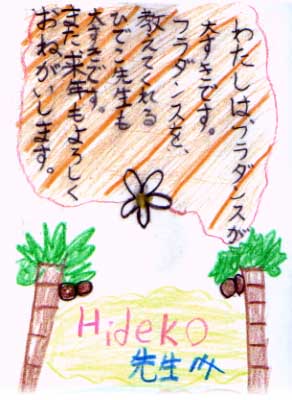 わたしは、フラダンスが
大すきです。
フラダンスを、
教えてくれる
ひでこ先生も
大すきです。
また来年もよろしく
おねがいします。
Hideko
先生へ